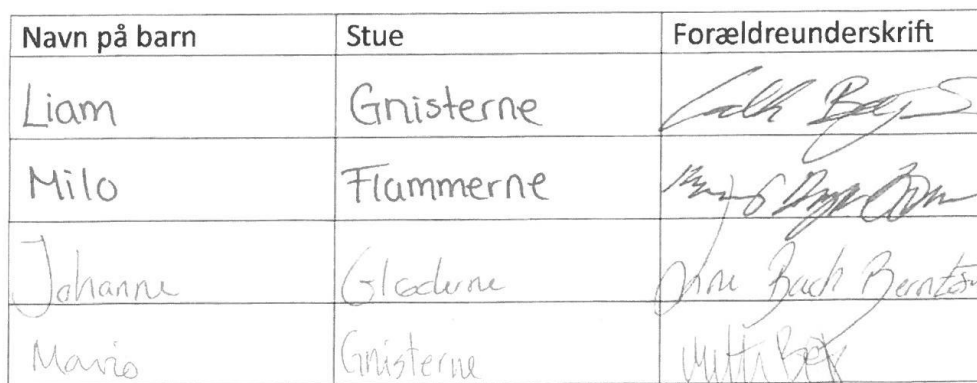 Navn på barn Stue Forældreunderskrift
Liam Gnisterne
Milo Flammerne
Johanne Gløderne Bach Berntsen
Mario Gnisterne